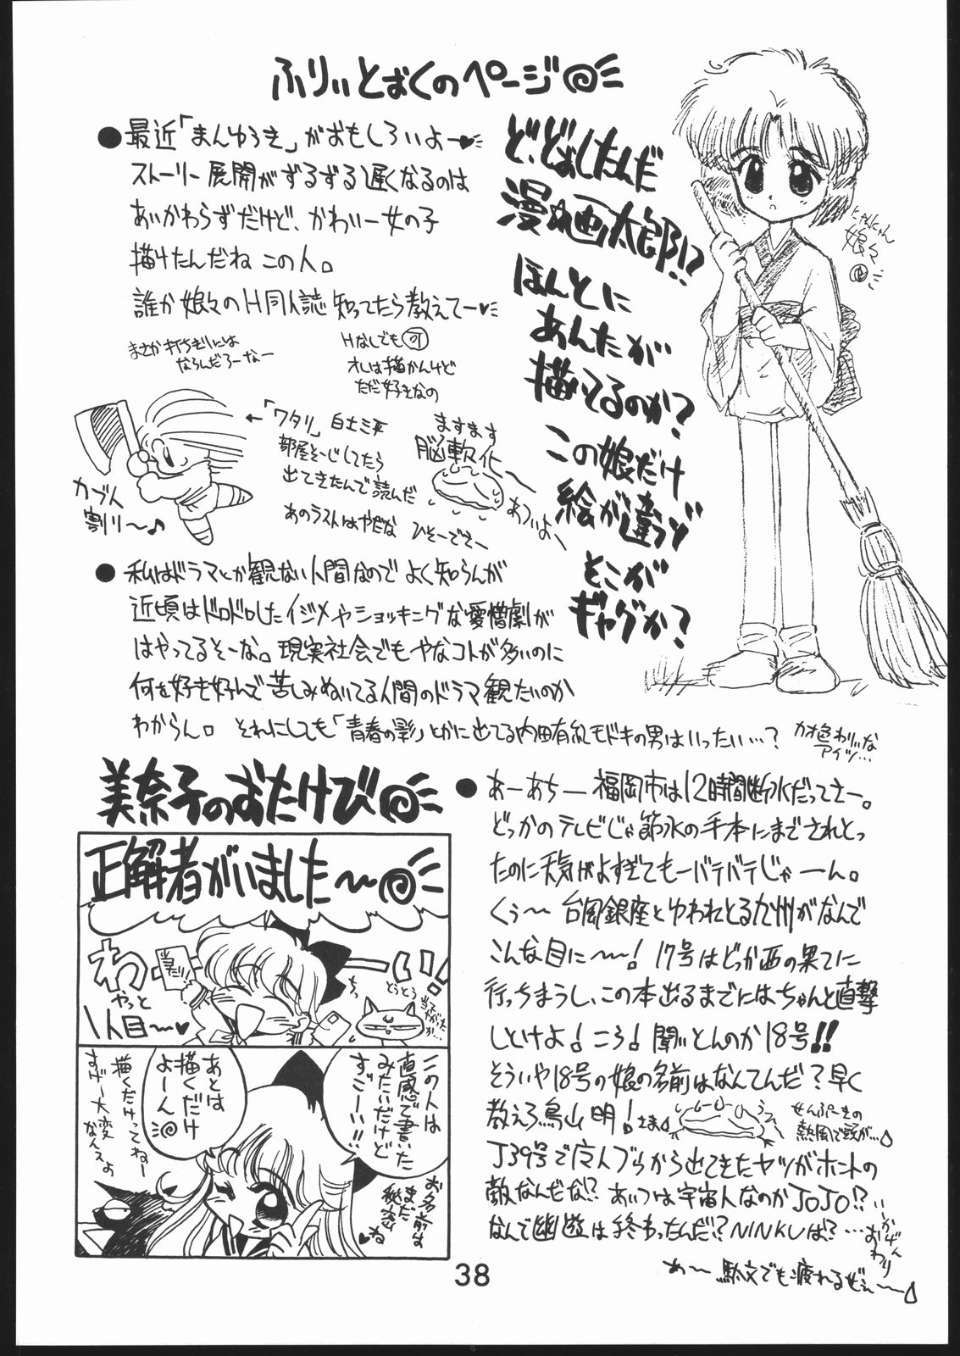 ふりぃとぉくのページ
●最近「まんゆうき」がおもしろいよー♥
ストーリー展開がずるずる遅くなるのは
あいかわらずだけど、かわいー女の子
描けたんだね この人。
誰か娘々のH同人誌 知ってたら教えてー♥
まさか打ち切りには
ならんだろーなー
Hなしでも可
オレは描かんけど
ただ好きなの
ど、どぉしたんだ
漫☆画太郎!?
ほんとに
あんたが
描いてるのか?
この娘だけ
絵が違うぞ
そこが
ギャグか?
娘々
←「ワタリ」白土三平
部屋そーじしてたら
出てきたんで読んだ
あのラストはやだな ひそーでさー
カブト
割り〜♪
ますます
脳軟化〜
あついよ〜
●私はドラマとか観ない人間なので よく知らんが
近頃はドロドロしたイジメやショッキングな愛憎劇が
はやってるそーな。現実社会でもやなコトが多いのに
何を好き好んで苦しみぬいてる人間のドラマ観たいのか
わからん。 それにしても「青春の影」とかに出てる内田有紀モドキの男はいったい…?
カオ色わりぃな
アイツ…
美奈子のおたけび
正解者がいました〜
わーーい!
当たり!
やっと
1人目〜♥
とうとう
この人は
直感で書いた
みたいだけど
すごーい!!
お名前は
まだ
秘密
♥ね
あとは
描くだけ
よーん
描くだけってねー
すげー大変
なんえぉ
●あーあちー 福岡市は12時間断水だってさー。
どっかのテレビじゃ節水の手本にまでされとっ
たのに天気がよすぎてもーバテバテじゃーん。
くぅ〜 台風銀座とゆわれとる九州がなんで
こんな目に〜〜! 17号はどっか西の果てに
行っちまうし、この本出るまでにはちゃんと直撃
しとけよ! ころ! 聞いとんのか18号!!
そういや18号の娘の名前はなんてんだ?早く
教えろ鳥山明! さま
せんぷーきの
熱風で我が…
J39号で魔人ブウから出てきたヤツがホントの
敵なんだな!? あいつは宇宙人なのかJOJO!?
なんで幽遊は終わったんだ!? NINKUは?…
かぜん
おわり
あ〜 駄文でも疲れるぜぇ〜
38